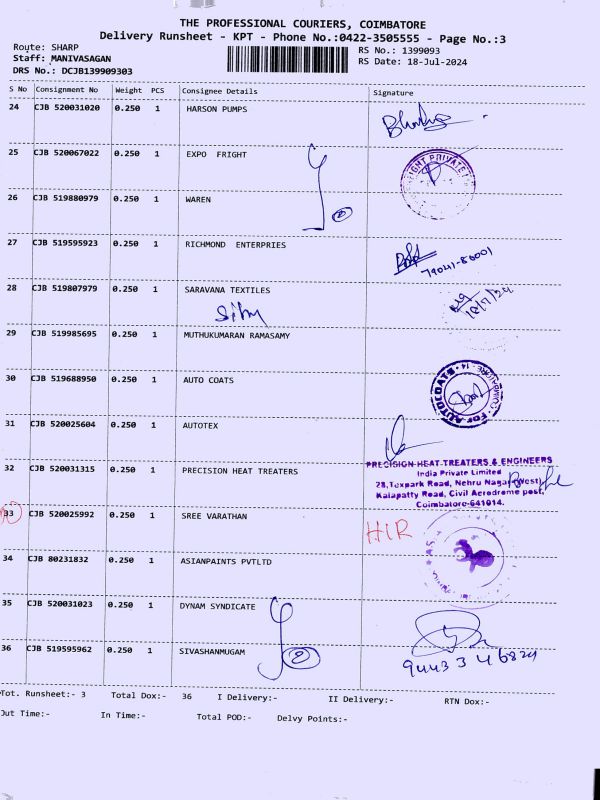 THE PROFESSIONAL COURIERS, COIMBATORE
Delivery Runsheet - KPT - Phone No.:0422-3505555 - Page No.:3
Route: SHARP
Staff: MANIVASAGAN
DRS No.: DCJB139909303
RS No.: 1399093
RS Date: 18-Jul-2024
S No Consignment No Weight PCS Consignee Details Signature
24 CJB 520031020 0.250 1 HARSON PUMPS
25 CJB 520067022 0.250 1 EXPO FRIGHT
26 CJB 519880979 0.250 1 WAREN
27 CJB 519595923 0.250 1 RICHMOND ENTERPRIES
79041-86001
28 CJB 519807979 0.250 1 SARAVANA TEXTILES
18/7/24
29 CJB 519985695 0.250 1 MUTHUKUMARAN RAMASAMY
30 CJB 519688950 0.250 1 AUTO COATS
FOR AUTOCOATS
31 CJB 520025604 0.250 1 AUTOTEX
32 CJB 520031315 0.250 1 PRECISION HEAT TREATERS
PRECISION HEAT TREATERS & ENGINEERS
India Private Limited
28,Texpark Road, Nehru Nagar (West)
Kalapatty Road, Civil Aerodrome post,
Coimbatore-641014.
33 CJB 520025992 0.250 1 SREE VARATHAN
HIR
34 CJB 80231832 0.250 1 ASIANPAINTS PVTLTD
35 CJB 520031023 0.250 1 DYNAM SYNDICATE
36 CJB 519595962 0.250 1 SIVASHANMUGAM
Tot. Runsheet:- 3 Total Dox:- 36 I Delivery:- II Delivery:- RTN Dox:-
Out Time:- In Time:- Total POD:- Delvy Points:-